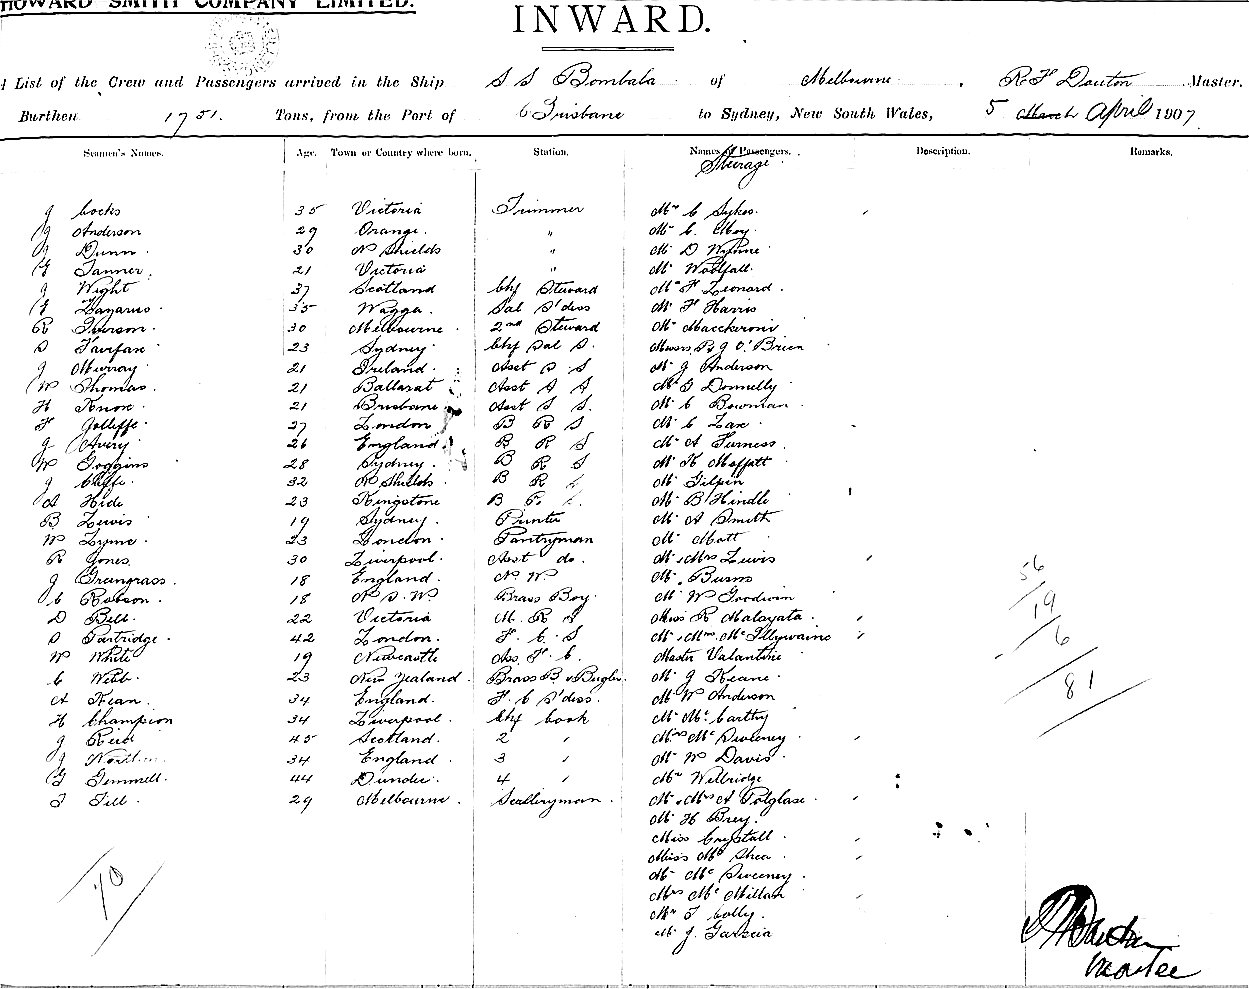 HOWARD SMITH COMPANY LIMITED.
INWARD.
A List of the Crew and Passengers arrived in the Ship S S Bombala of Melbourne, R F Dauton Master.
Burthen 1751. Tons, from the Port of Brisbane to Sydney, New South Wales, 5 March April 1907
Seamen's Names. Age. Town or Country where born. Station. Names of Passengers. Description. Remarks.
Steerage
J Cocks 35 Victoria Trimmer Mr C Sykes.
J Anderson 29 Orange. " Mr C. Moy.
J Dunn 30 N Shields " Mr D Wynne
G Tanner. 21 Victoria " Mr Woolfall.
J Wight 37 Scotland Chf Steward Mr F Leonard.
E Lazarus 35 Wagga. Sal S'dess Mr F Harris
R Iverson. 30 Melbourne. 2nd Steward Mr Macckeroni
S Fairfax 23 Sydney Chf Sal S. Messrs P J O'Brien
J Murray 21 Ireland. Asst S S Mr J Anderson
W Thomas. 21 Ballarat Asst S S Mr J Donnelly
H Knox. 21 Brisbane Asst S S. Mr C Bowman
F Jolliffe. 27 London B R S Mr C Lax
J Avery 26 England. B R S Mr A Furness.
W Goggins 28 Sydney. B R S Mr H Moffatt
J Cliffe. 32 N Shields B R S Mr Gilpin
A Hide 23 Kingstone B R S Mr B Hindle
B Lewis 19 Sydney. Printer Mr A Smith
W Lyme. 23 London. Pantryman Mr Mott
R Jones. 30 Liverpool. Asst do. Mr & Mrs Lewis
J Greengrass. 18 England. N. W Mr. Burns
C Robson. 18 N. S. W. Brass Boy. Mr W Goodwin
D Bell. 22 Victoria M. R S Miss R Malayata.
S Partridge. 42 London. F. C. S Mr & Mrs McIllywaine
W White 19 Newcastle Ass. F. C. Master Valantine
C Webb. 23 New Zealand. Brass B & Bugler. Mr J Keane.
A Kean. 34 England. F. C S'dess. Mr W Anderson
H Champion 34 Liverpool. Chf Cook Mr McCarthy
J Reid 45 Scotland. 2 " Mrs McSweeney
J 34 England. 3 " Mr W Davis.
G Gemmell. 44 Dundee. 4 " Mr Welbridge
T Till. 29 Melbourne. Sculleryman. Mr & Mrs A Polglase.
Mr H Brey.
Miss Crystall.
Miss McShea.
Mr McSweeney.
Mrs McMillan
Mr T Colly.
Mr J. Garscia
56
19
6
81
70
Master